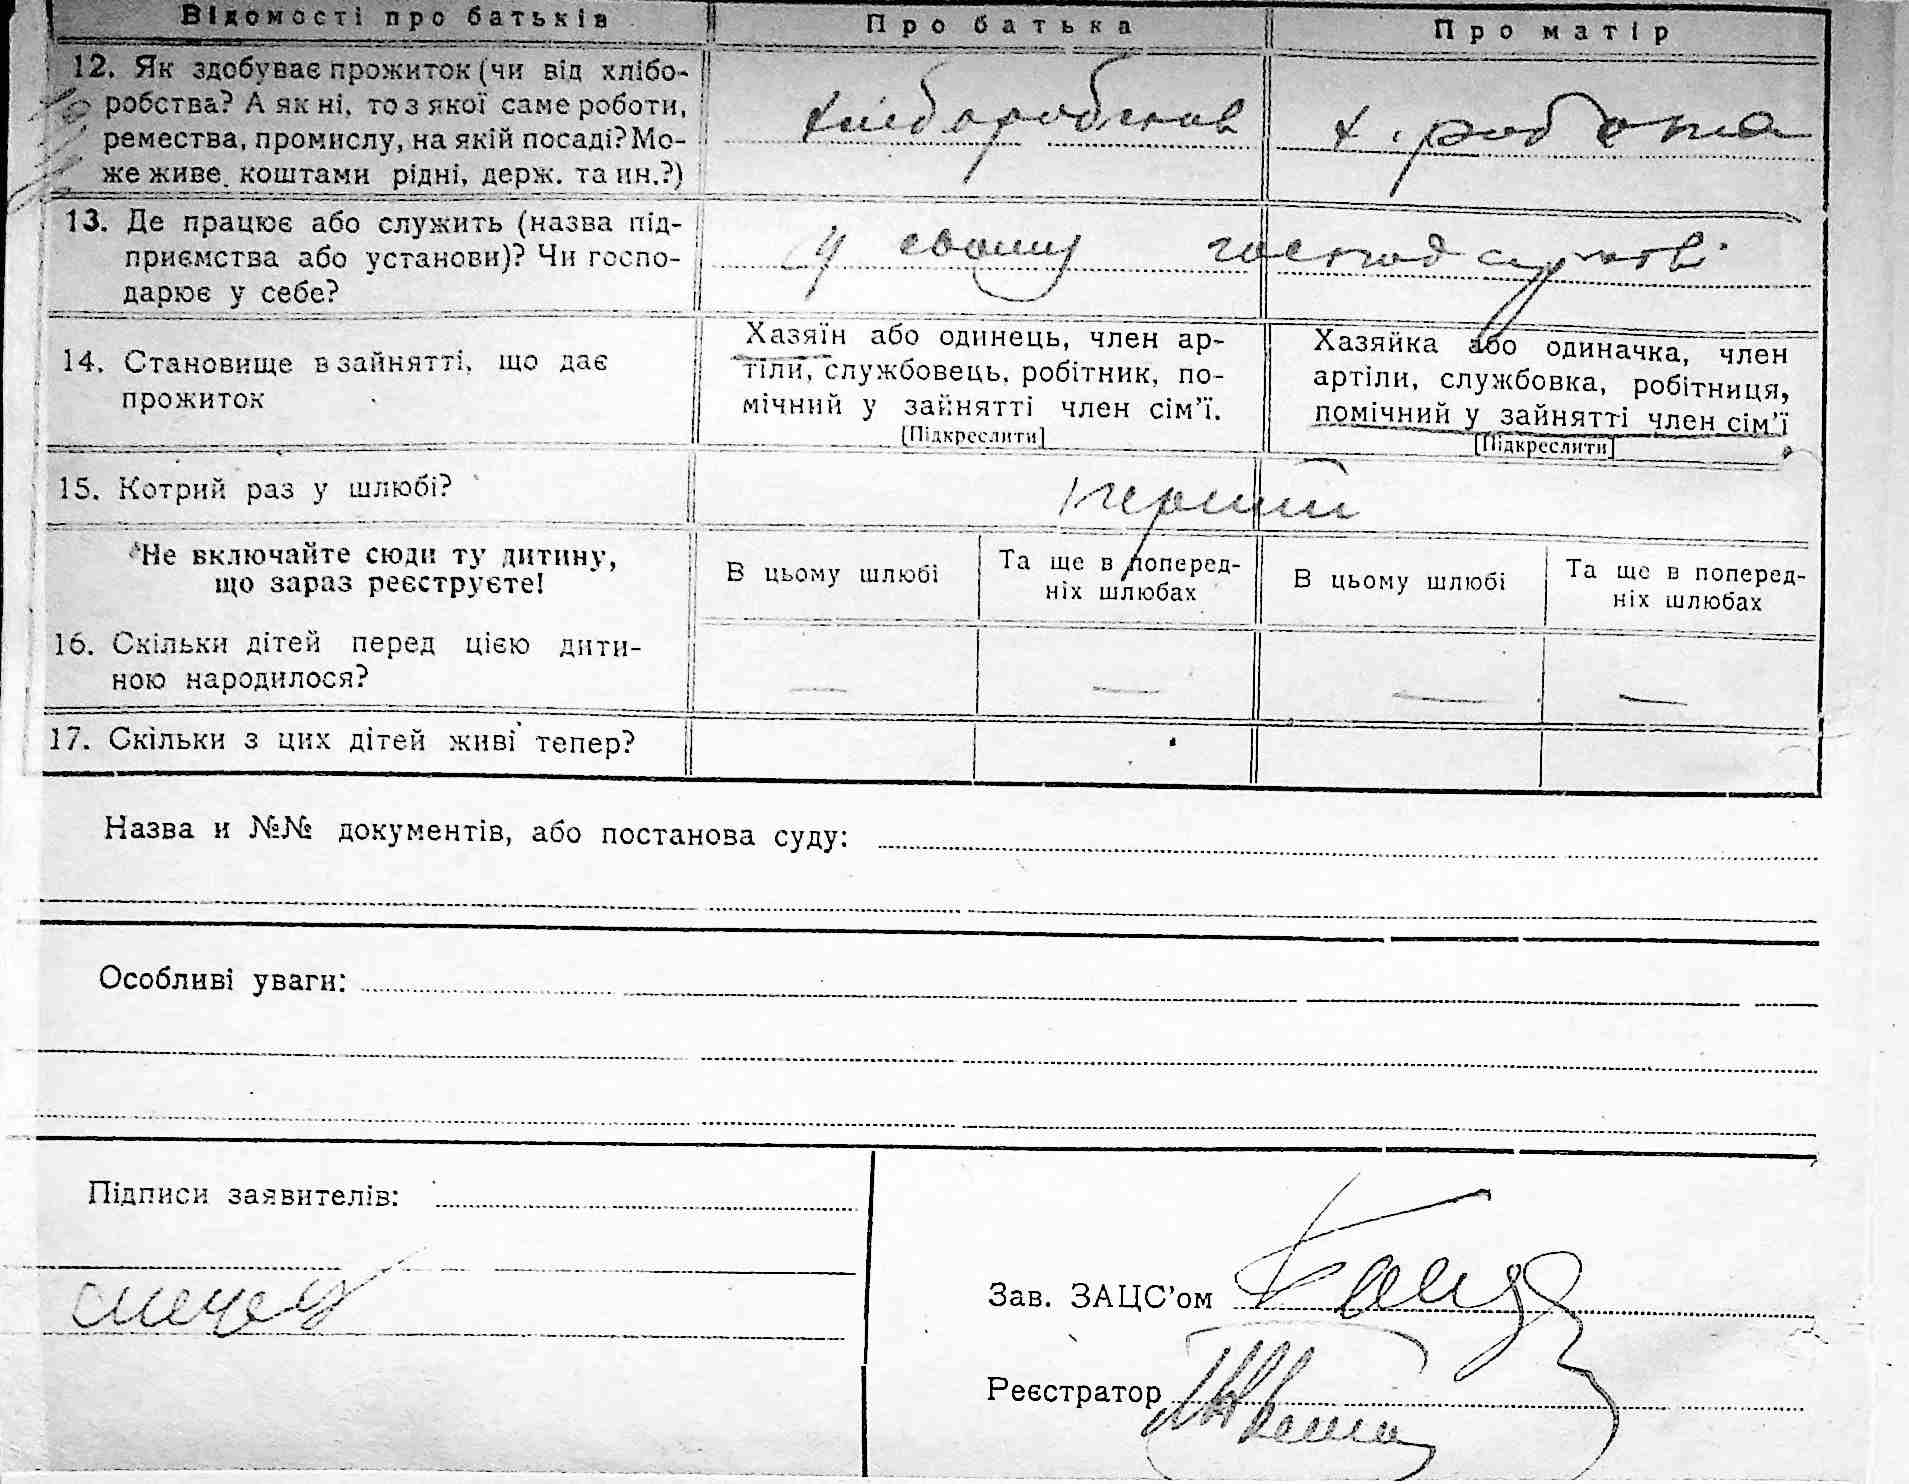 Відомості про батьків Про батька Про матір
12. Як здобуває прожиток (чи від хлібо-
робства? А як ні, то з якої саме роботи,
ремества, промислу, на якій посаді? Мо-
же живе коштами рідні, держ. та ин.?)
хліборобство
х. робота
13. Де працює або служить (назва під-
приємства або установи)? Чи госпо-
дарює у себе?
у своему господарстві
14. Становище в зайнятті, що дає
прожиток
Хазяїн або одинець, член ар-
тіли, службовець, робітник, по-
мічний у зайнятті член сім'ї.
[Підкреслити]
Хазяйка або одиначка, член
артіли, службовка, робітниця,
помічний у зайнятті член сім'ї
[Підкреслити]
15. Котрий раз у шлюбі?
перший
Не включайте сюди ту дитину,
що зараз реєструєте!
В цьому шлюбі
Та ще в поперед-
ніх шлюбах
В цьому шлюбі
Та ще в поперед-
ніх шлюбах
16. Скільки дітей перед цією дити-
ною народилося?
— — — —
17. Скільки з цих дітей живі тепер?
Назва и №№ документів, або постанова суду:
Особливі уваги:
Підписи заявителів:
Зав. ЗАЦС'ом
Реєстратор